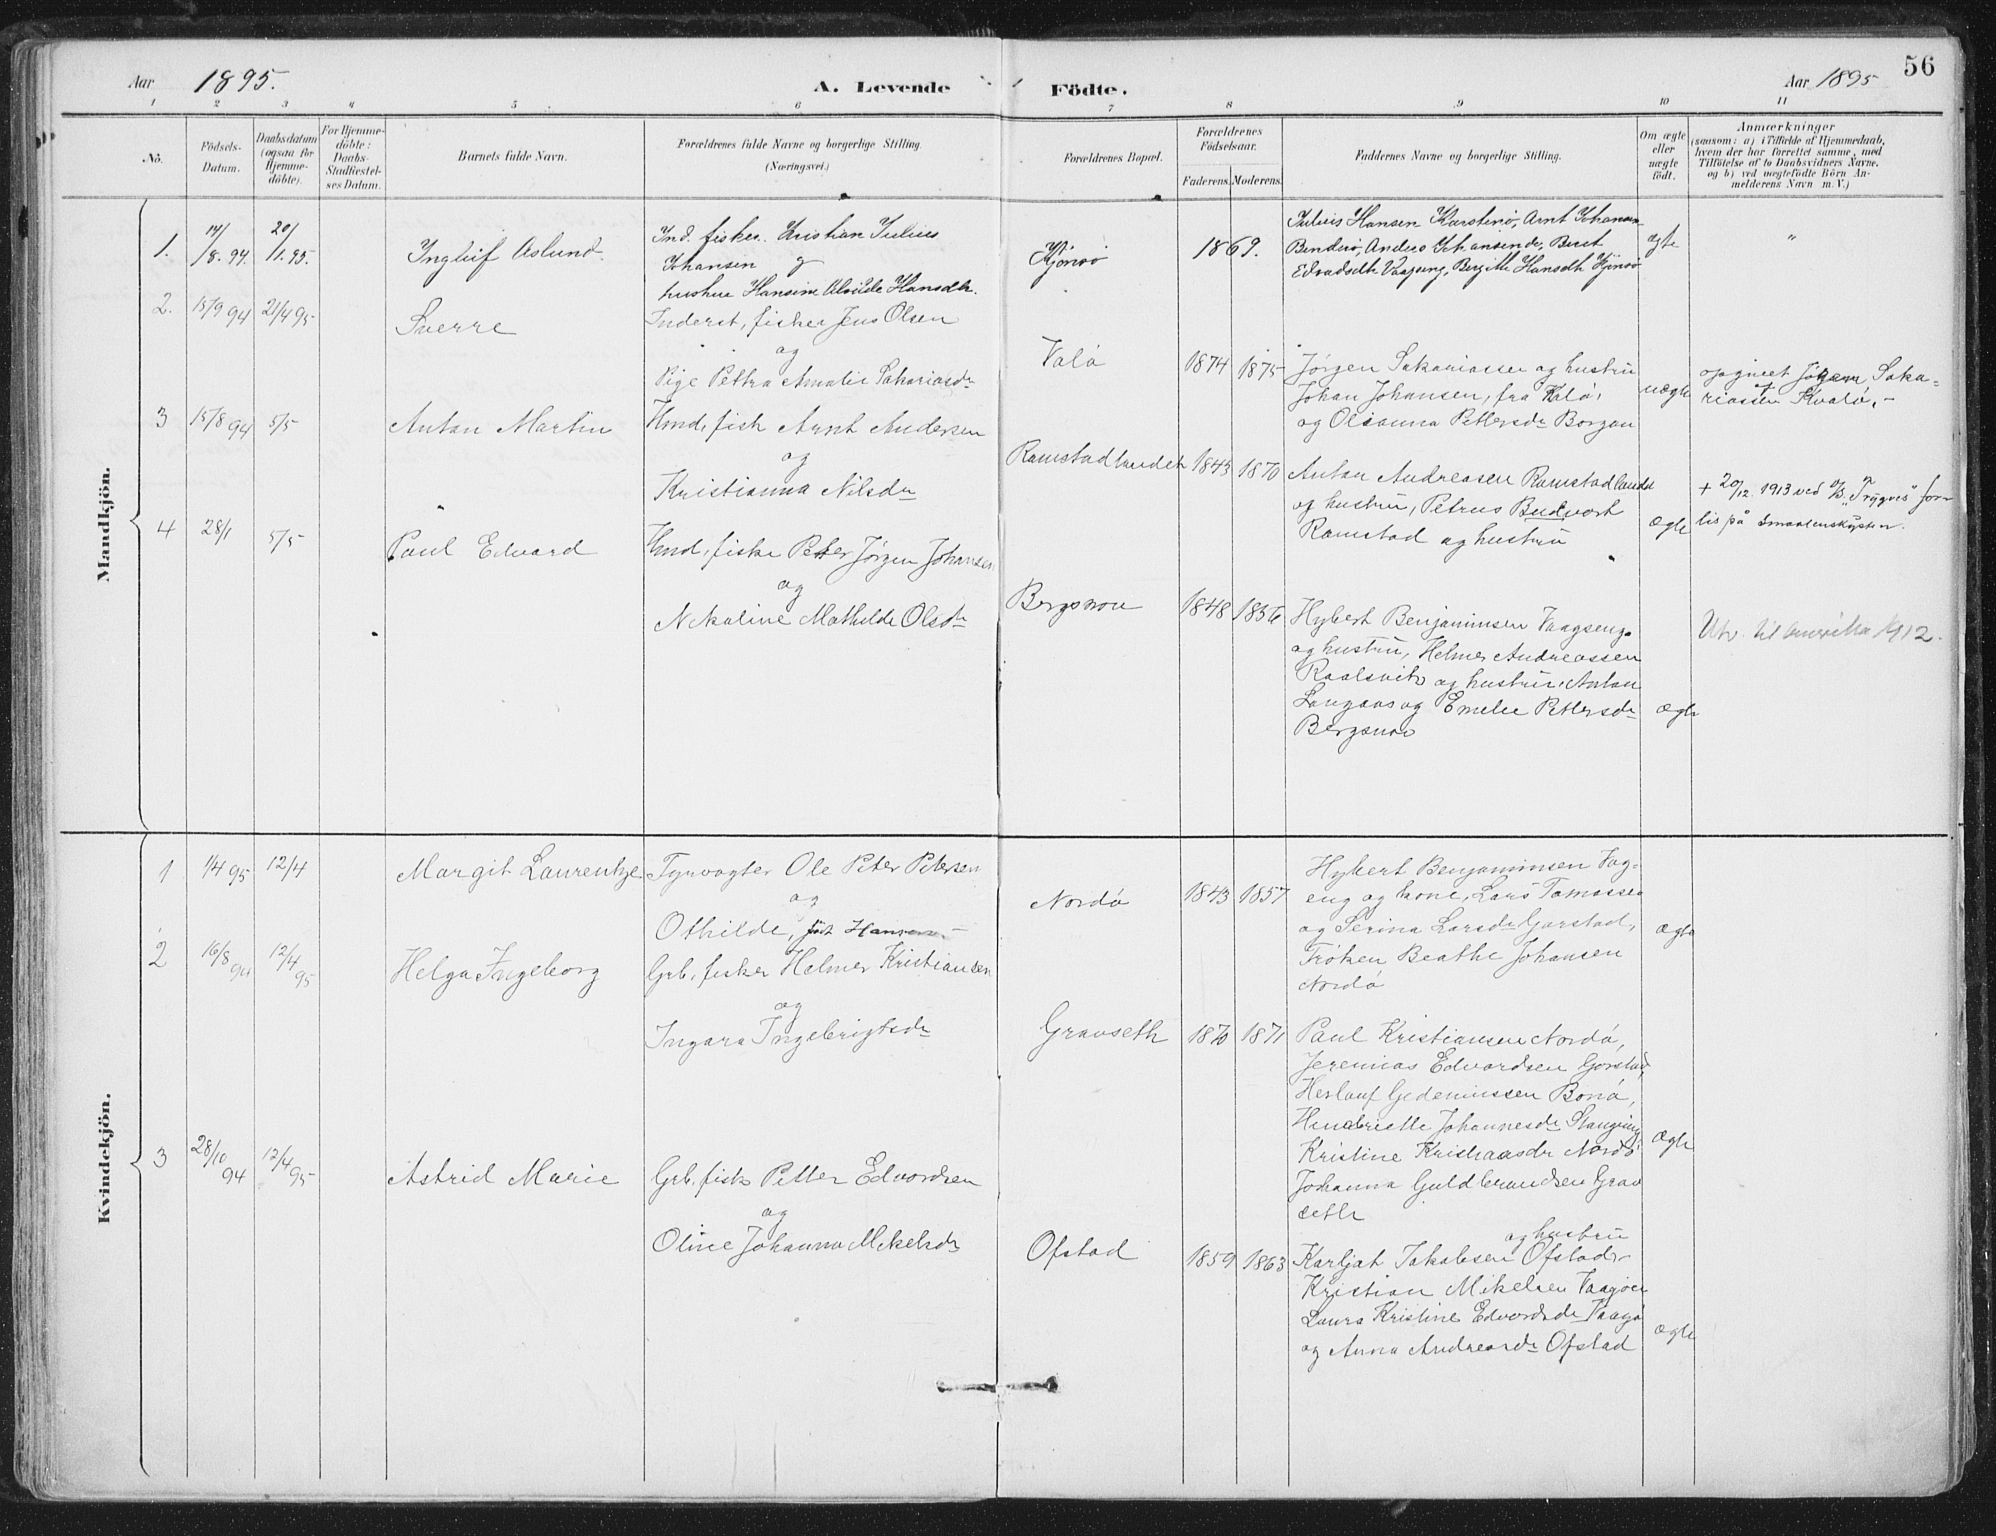 56
Aar 1895. A. Levende Födte. Aar 1895
1 2 3 4 5 6 7 8 9 10 11
No.
Födsels-
Datum.
Daabsdatum
(ogsaa for
Hjemme-
döbte).
For Hjemme-
döbte:
Daabs-
Stadfæstel-
ses Datum.
Barnets fulde Navn.
Forældrenes fulde Navne og borgerlige Stilling.
(Næringsvei.)
Forældrenes Bopæl.
Forældrenes
Födselsaar.
Faderens. Moderens.
Faddernes Navne og borgerlige Stilling.
Om ægte
eller
uægte
födt.
Anmærkninger
(saasom: a) i Tilfælde af Hjemmedaab,
hvem der har forrettet samme, med
Tilföielse af to Daabsvidners Navne,
og b) ved uægtefödte Börn An-
melderens Navn m. V.)
Mandkjön.
1. 14/8.94. 20/1.95. Aslund.
Ind. fisker. Kristian Julius
Johansen og
hustru Hansine Hansdtr.
1869.
Julius Hansen Arnt Johansen
Anders Berit
Bergitte Hansdtr
ægte "
2. 15/9 94 21/4 95 Sverre
Inderst, fisker Jens Olsen
og
Pige Petra Amalie Sakariasdr
Valø 1874 1875
Jørgen Sakariassen og hustru
Johan Johansen, fra
og Oisanna Pettersdr Borgan
uægte
opgivet Jørgen Saka-
riassen Kvalø,
3 15/8 94 5/5 Anton Martin
Hmd, fisk Arnt Andersen
og
Kristianna Nilsdr
Ramstadlandet 1843 1870
Anton Andreasen Ramstadlandet
og hustru, Petrus
Ramstad og hustru
ægte
+ 20/12 1913 ved "Trygves" for-
lis på Smaalenskysten.
4 28/1 5/5 Paul Edvard
Hmd, fiske Peter Jørgen Johansen
og
Nekoline Mathilde Olsdr
Bergsnov 1848 1856
Hybert Benjaminsen Vaagseng
og hustru, Helmer Andreassen
og hustru, Anton
Langaas og Emelie Pettersdr
Bergsnov
ægte
Utv. til Amerika 1912.
Kvindekjön.
1 1/4 95 12/4 Margit Laurentze
Fyrvogter Ole Peter Petersen
og
Othilde, født Hansen
Nordø 1843 1857
Hybert Benjaminsen Vag-
eng og kone, Lars Tomassen
og Serina Larsdr Gorstad,
Frøken Beathe Johansen
Nordø
ægte
2 16/8 94 12/4 95 Helga Ingeborg
Grb, fisker Helmer Kristiansen
og
Ingara Ingebrigtsdr
Gravseth 1870 1871
Paul Kristiansen Nordø,
Jeremias Edvardsen Gorstad,
Herlauf Gedeminssen Bonø,
Hendriette Johannesdr
Kristine Kristiansdr Nordø
Johanna Guldbrandsen Grav
seth
ægte
3 28/10 94 12/4 95 Astrid Marie
Grb, fisk Petter Edvardsen
og
Oline Johanna Mikelsdr
Ofstad 1859 1863
og hustru
Jakobsen Ofstad
Kristian Mikelsen
Laura Kristine Edvardsdr
og Anna Andreasdr Ofstad
ægte